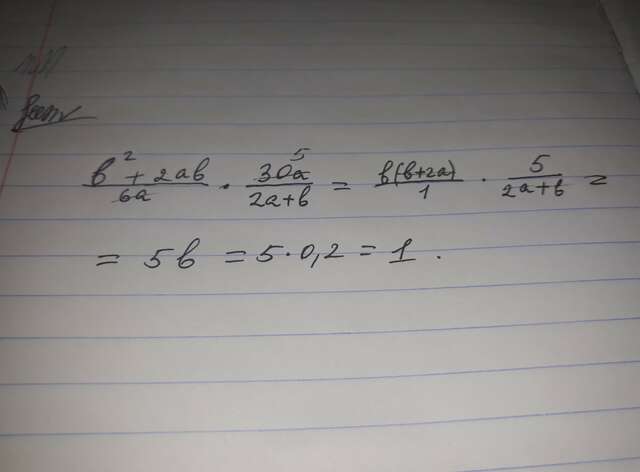 b² + 2ab / 6a · 30a / 2a+b = b(b+2a) / 1 · 5 / 2a+b =
= 5b = 5·0,2 = 1.